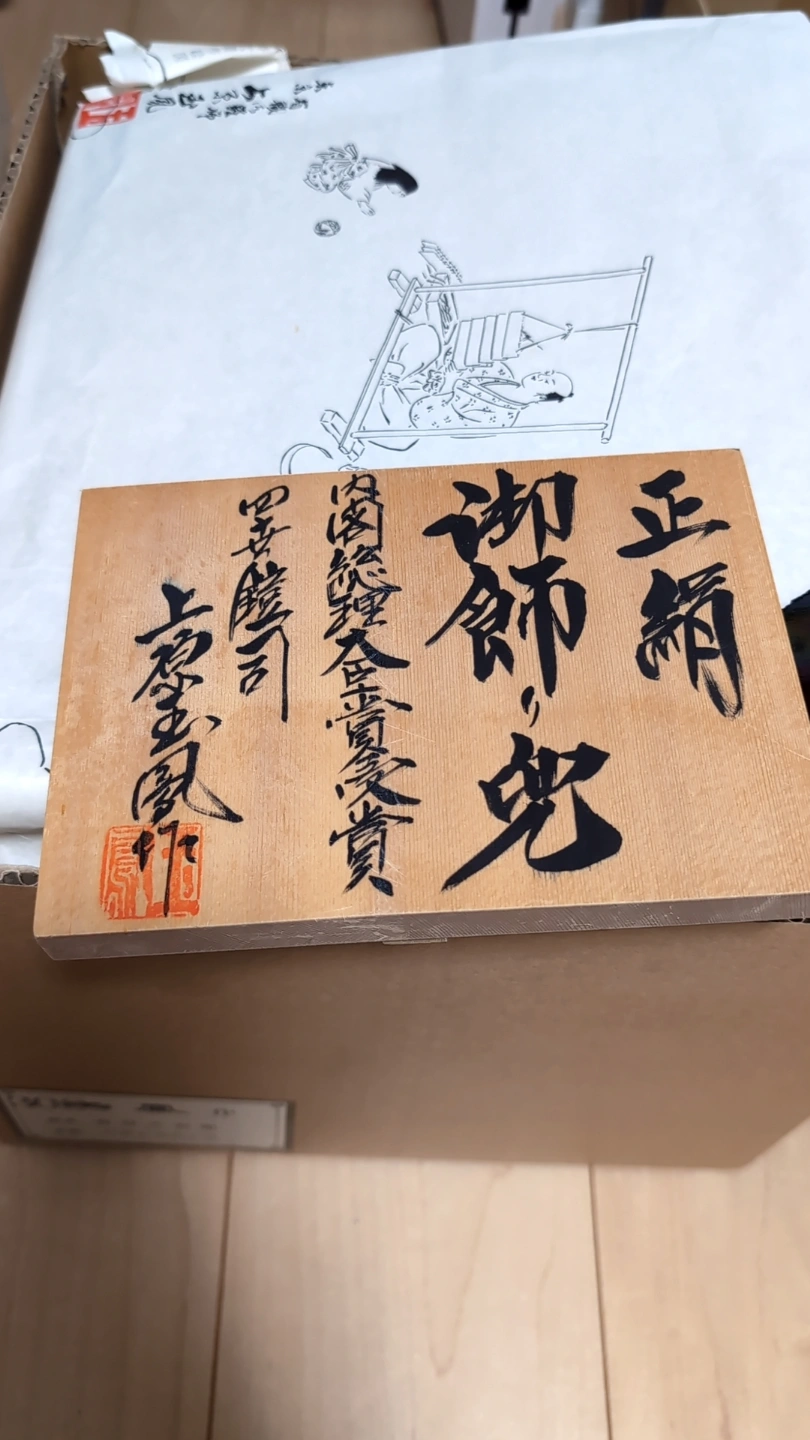 正絹
御飾り兜
内閣総理大臣賞受賞
四世鎧司
上原玉鳳作